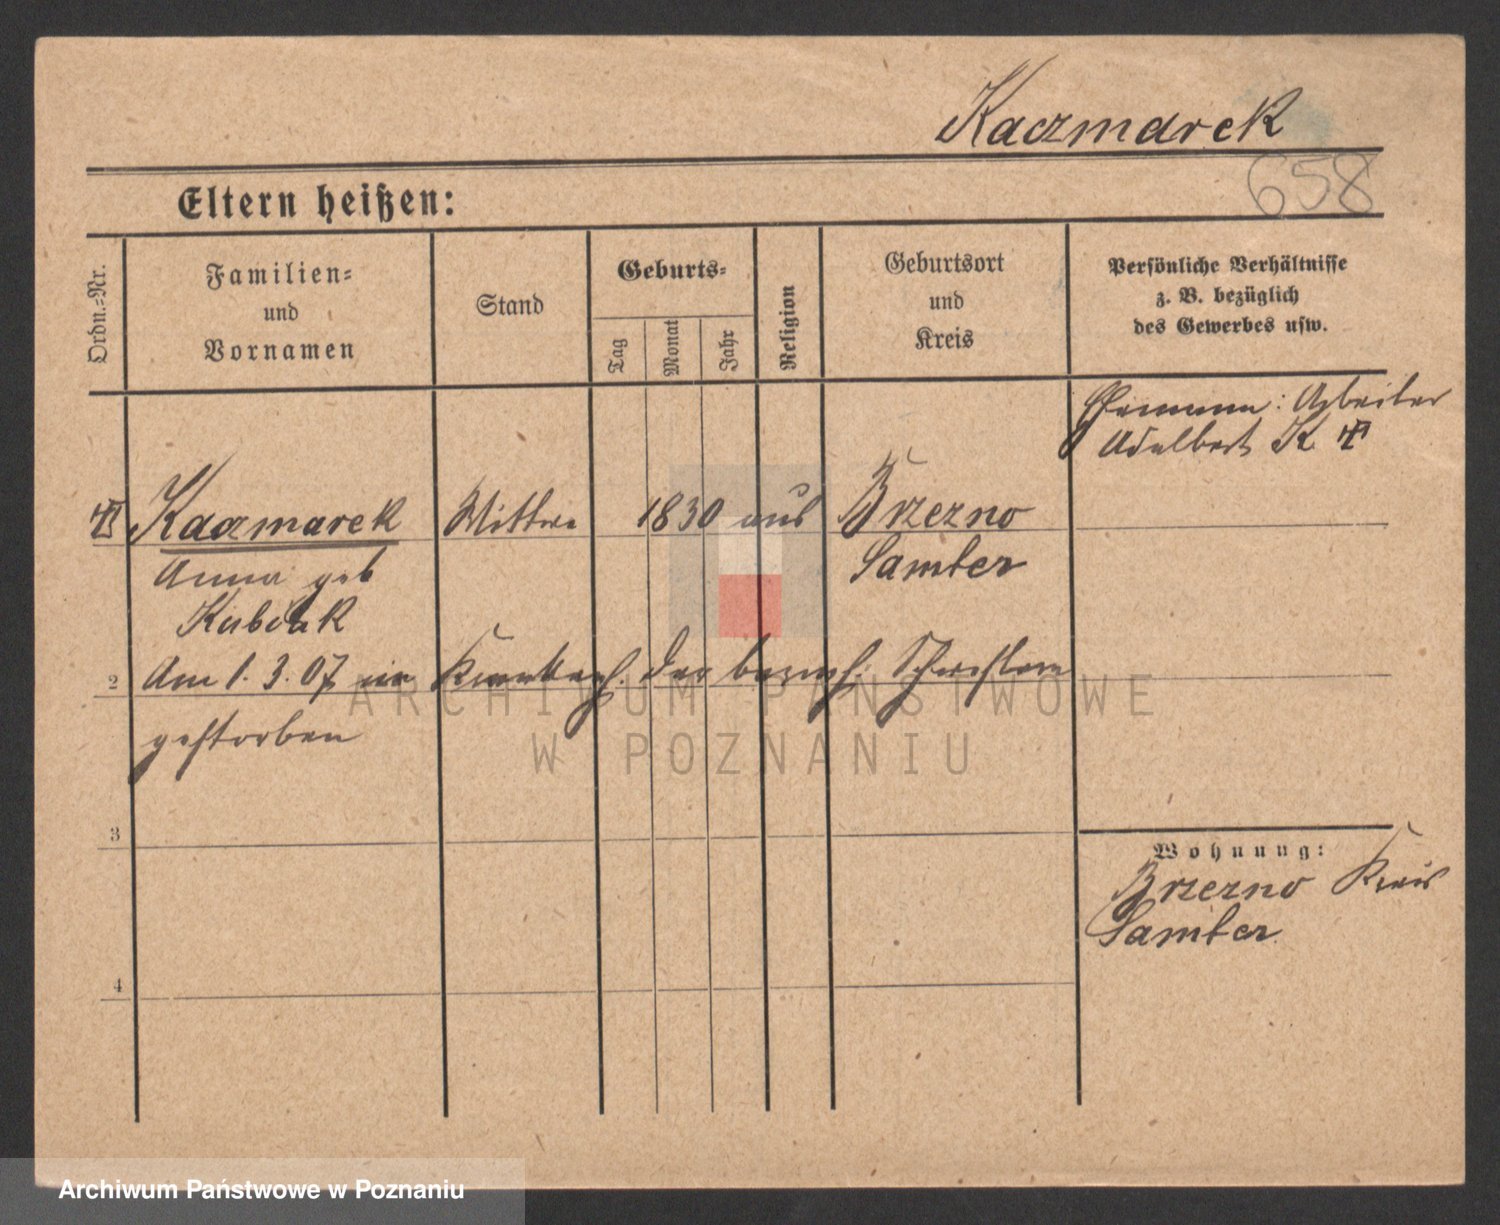 Kaczmarek
658
Eltern heißen:
Ordn.=Nr.
Familien=
und
Vornamen
Stand
Geburts=
Tag
Monat
Jahr
Religion
Geburtsort
und
Kreis
Persönliche Verhältnisse
z. B. bezüglich
des Gewerbes usw.
Ehemann: Arbeiter
Adalbert K.
Kaczmarek Wittwe 1830 aus Brzezno
Anna geb Samter
Kubiak
2 Am 1. 3. 07 im Krankenh. der barmh. Schwestern
gestorben
3
Wohnung:
Brzezno Kreis
Samter
4
ARCHIWUM PAŃSTWOWE
W POZNANIU
Archiwum Państwowe w Poznaniu